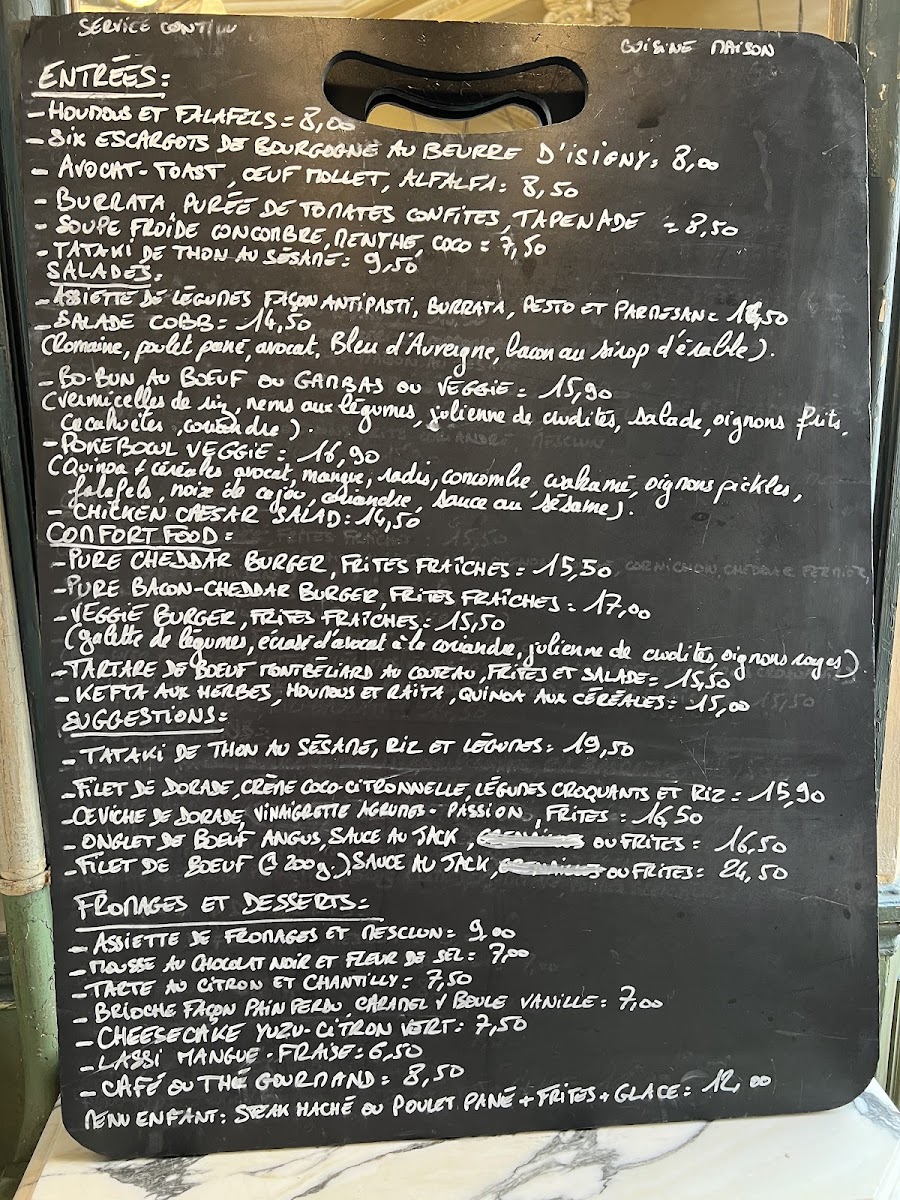 SERVICE CONTINU
CUISINE MAISON
ENTRÉES:
- HOUMOUS ET FALAFELS = 8,00
- SIX ESCARGOTS DE BOURGOGNE AU BEURRE D'ISIGNY: 8,00
- AVOCAT-TOAST, ŒUF MOLLET, ALFALFA: 8,50
- BURRATA, PURÉE DE TOMATES CONFITES, TAPENADE = 8,50
- SOUPE FROIDE CONCOMBRE, MENTHE, COCO = 7,50
- TATAKI DE THON AU SÉSAME: 9,50
SALADES:
- ASSIETTE DE LÉGUMES FAÇON ANTIPASTI, BURRATA, PESTO ET PARMESAN: ,50
- SALADE COBB = 14,50
(Romaine, poulet pané, avocat, Bleu d'Auvergne, bacon au sirop d'érable).
- BO-BUN AU BOEUF OU GAMBAS OU VEGGIE = 15,90
(vermicelles de riz, nems aux légumes, julienne de crudités, salade, oignons frits,
cacahuètes, coriandre).
- POKEBOWL VEGGIE: 16,90
(Quinoa + céréales, avocat, mangue, radis, concombre, wakamé, oignons pickles,
falafels, noix de cajou, coriandre, sauce au sésame).
- CHICKEN CAESAR SALAD: 14,50
CONFORT FOOD:
- PURE CHEDDAR BURGER, FRITES FRAÎCHES = 15,50
- PURE BACON-CHEDDAR BURGER, FRITES FRAÎCHES = 17,00
- VEGGIE BURGER, FRITES FRAÎCHES = 15,50
(galette de légumes, écrasé d'avocat à la coriandre, julienne de crudités, oignons rouges)
- TARTARE DE BOEUF MONTBÉLIARD AU COUTEAU, FRITES ET SALADE = 15,50
- KEFTA AUX HERBES, HOUMOUS ET RAITA, QUINOA AUX CÉRÉALES = 15,00
SUGGESTIONS:
- TATAKI DE THON AU SÉSAME, RIZ ET LÉGUMES: 19,50
- FILET DE DORADE, CRÈME COCO-CITRONNELLE, LÉGUMES CROQUANTS ET RIZ = 15,90
- CEVICHE DE DORADE, VINAIGRETTE AGRUMES-PASSION, FRITES: 16,50
- ONGLET DE BOEUF ANGUS, SAUCE AU JACK, OU FRITES: 16,50
- FILET DE BOEUF (200g.), SAUCE AU JACK, OU FRITES: 24,50
FROMAGES ET DESSERTS:
- ASSIETTE DE FROMAGES ET MESCLUN = 9,00
- MOUSSE AU CHOCOLAT NOIR ET FLEUR DE SEL: 7,00
- TARTE AU CITRON ET CHANTILLY = 7,50
- BRIOCHE FAÇON PAIN PERDU, CARAMEL & BOULE VANILLE: 7,00
- CHEESECAKE YUZU-CITRON VERT: 7,50
- LASSI MANGUE-FRAISE: 6,50
- CAFÉ OU THÉ GOURMAND = 8,50
MENU ENFANT: STEAK HACHÉ OU POULET PANÉ + FRITES + GLACE: 12,00